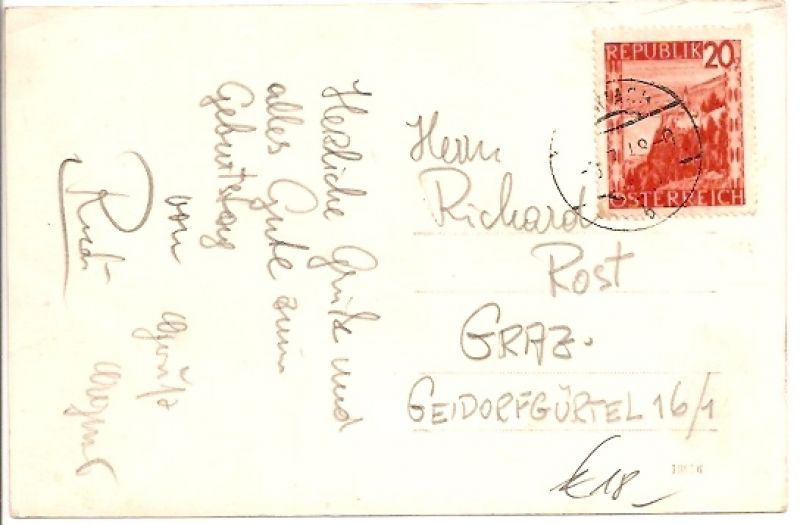 Herzliche Grüße und
alles Gute zum
Geburtstag
von
Rudi
REPUBLIK 20
ÖSTERREICH
Herrn
Richard
Rost
GRAZ.
GEIDORFGÜRTEL 16/1
k 18